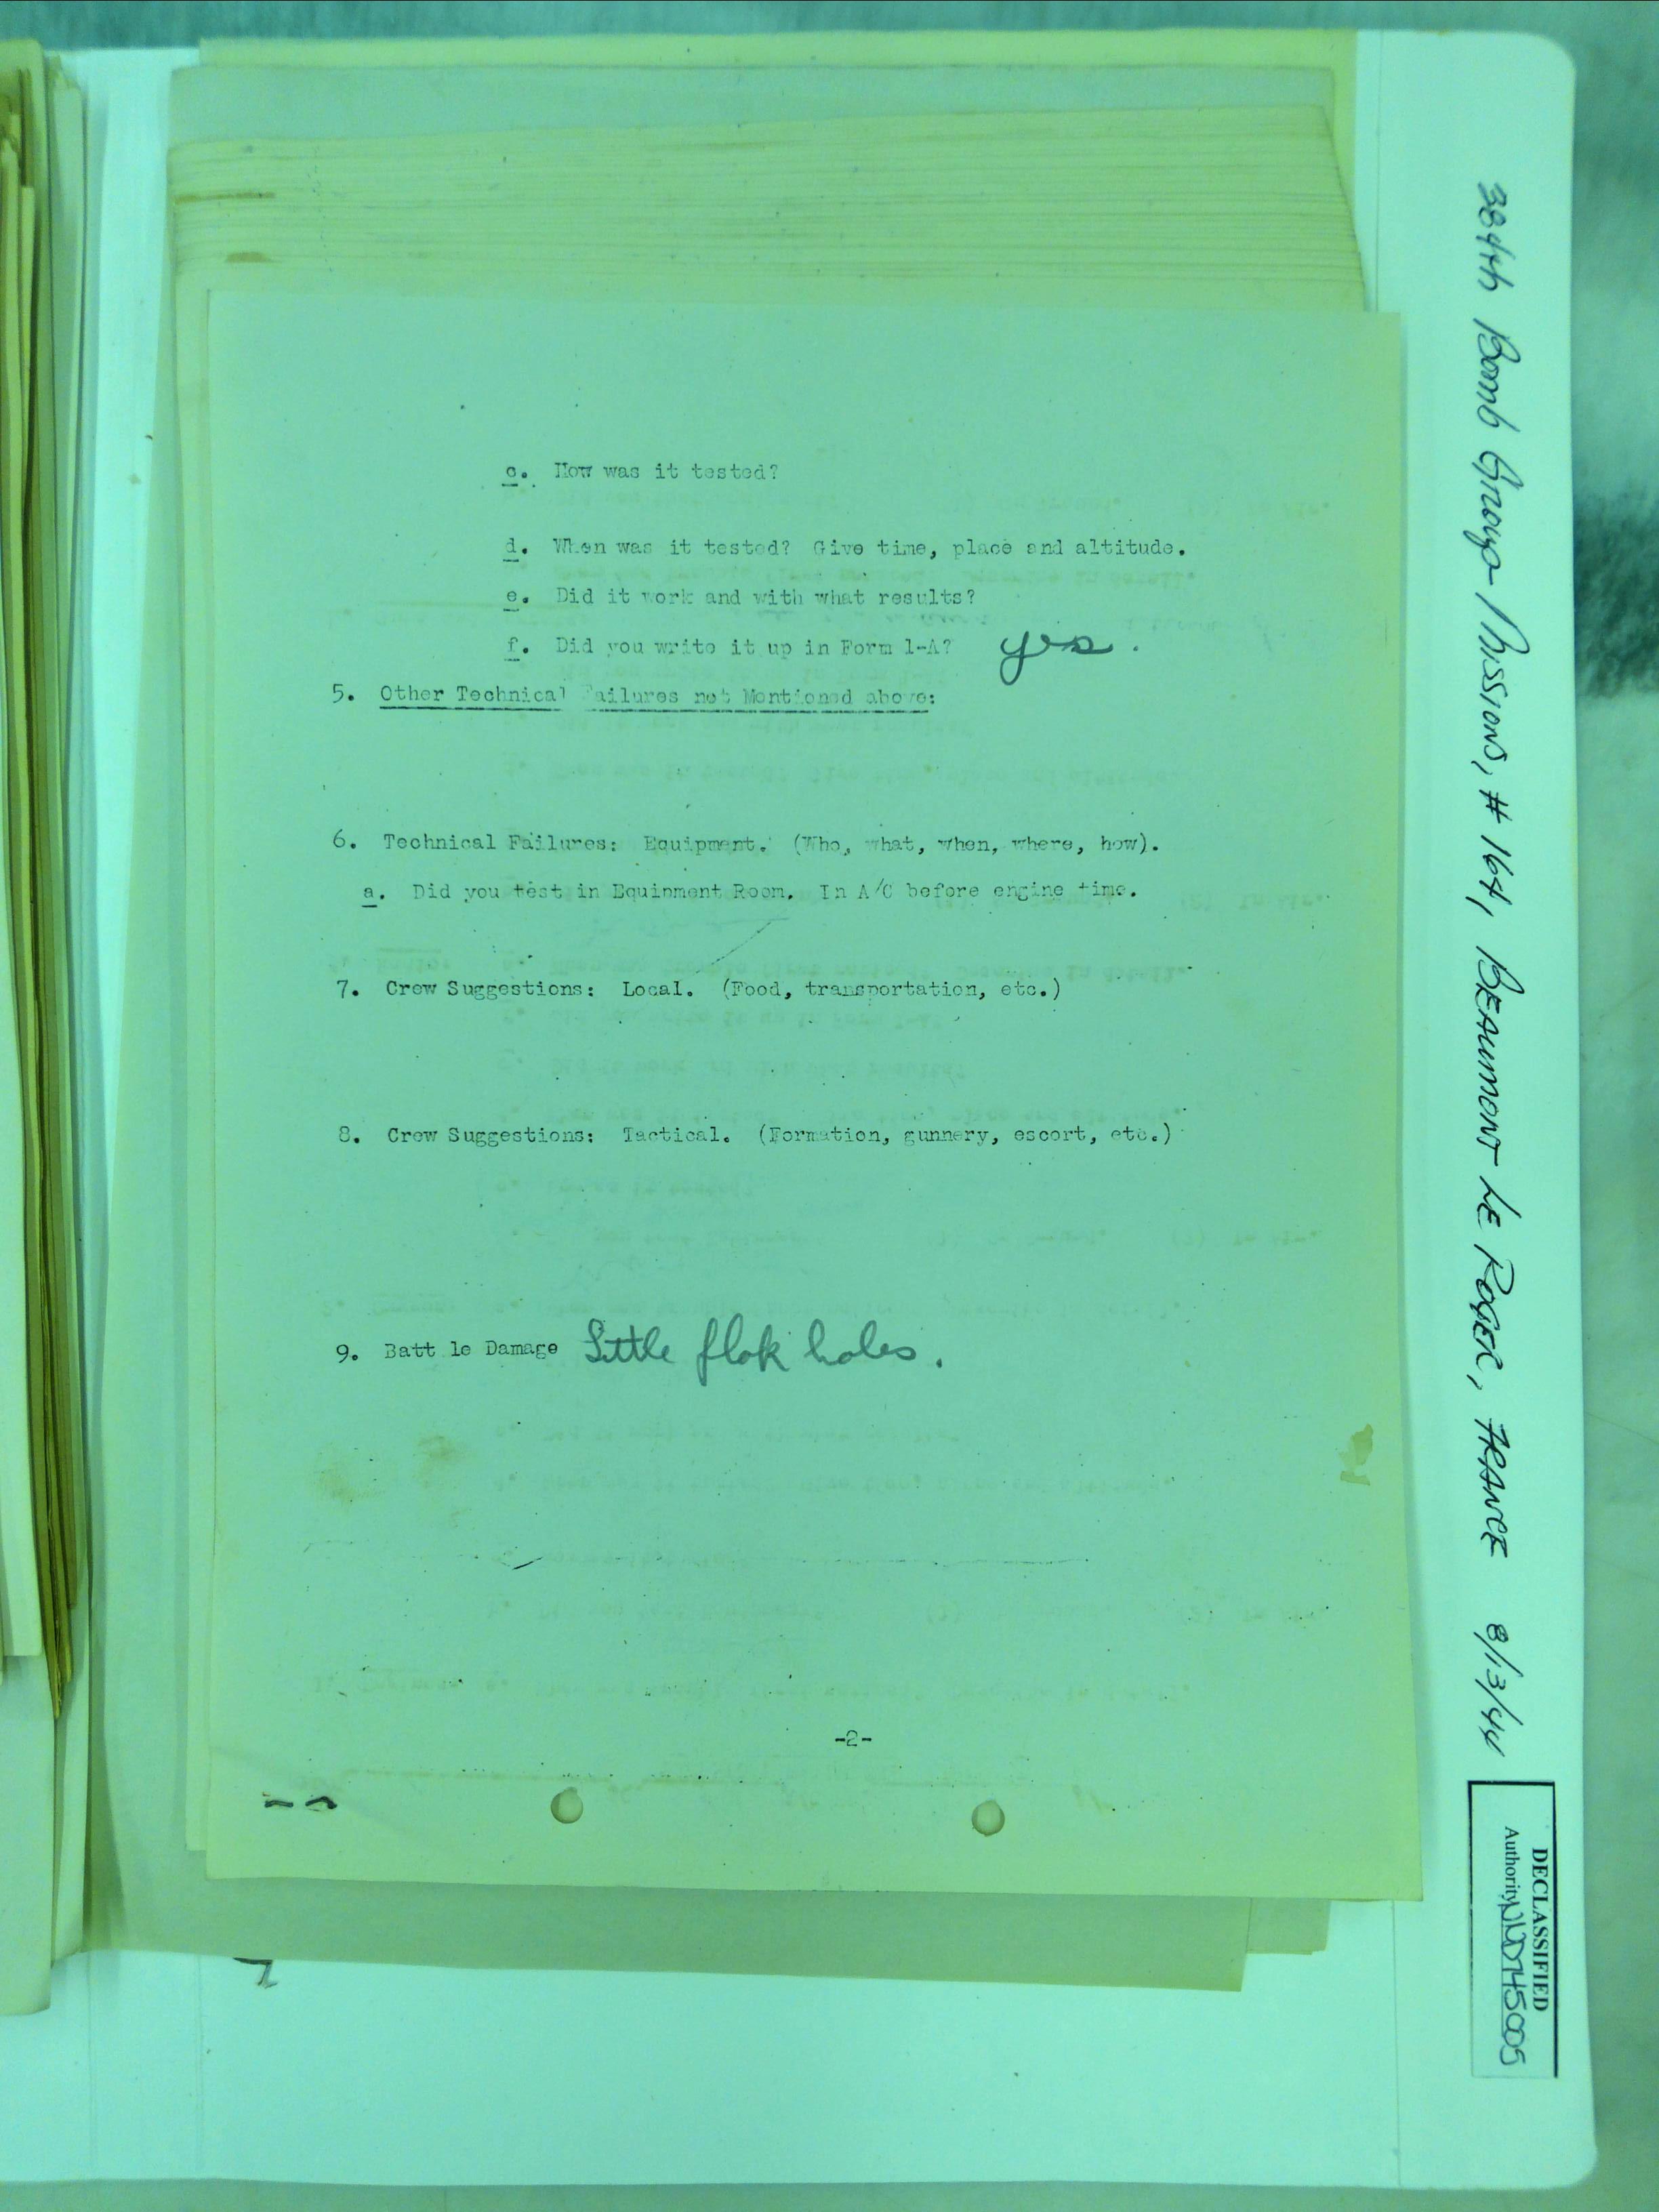 c. How was it tested?
d. When was it tested? Give time, place and altitude.
e. Did it work and with what results?
f. Did you write it up in Form 1-A? yes.
5. Other Technical Failures not Mentioned above:
6. Technical Failures: Equipment. (Who, what, when, where, how).
a. Did you test in Equipment Room. In A/C before engine time.
7. Crew Suggestions: Local. (Food, transportation, etc.)
8. Crew Suggestions: Tactical. (Formation, gunnery, escort, etc.)
9. Batt le Damage Little flak holes.
-2-
384th Bomb Group Missions, # 164, BEAUMONT LE ROGER, FRANCE 8/13/44
DECLASSIFIED
Authority NND745005